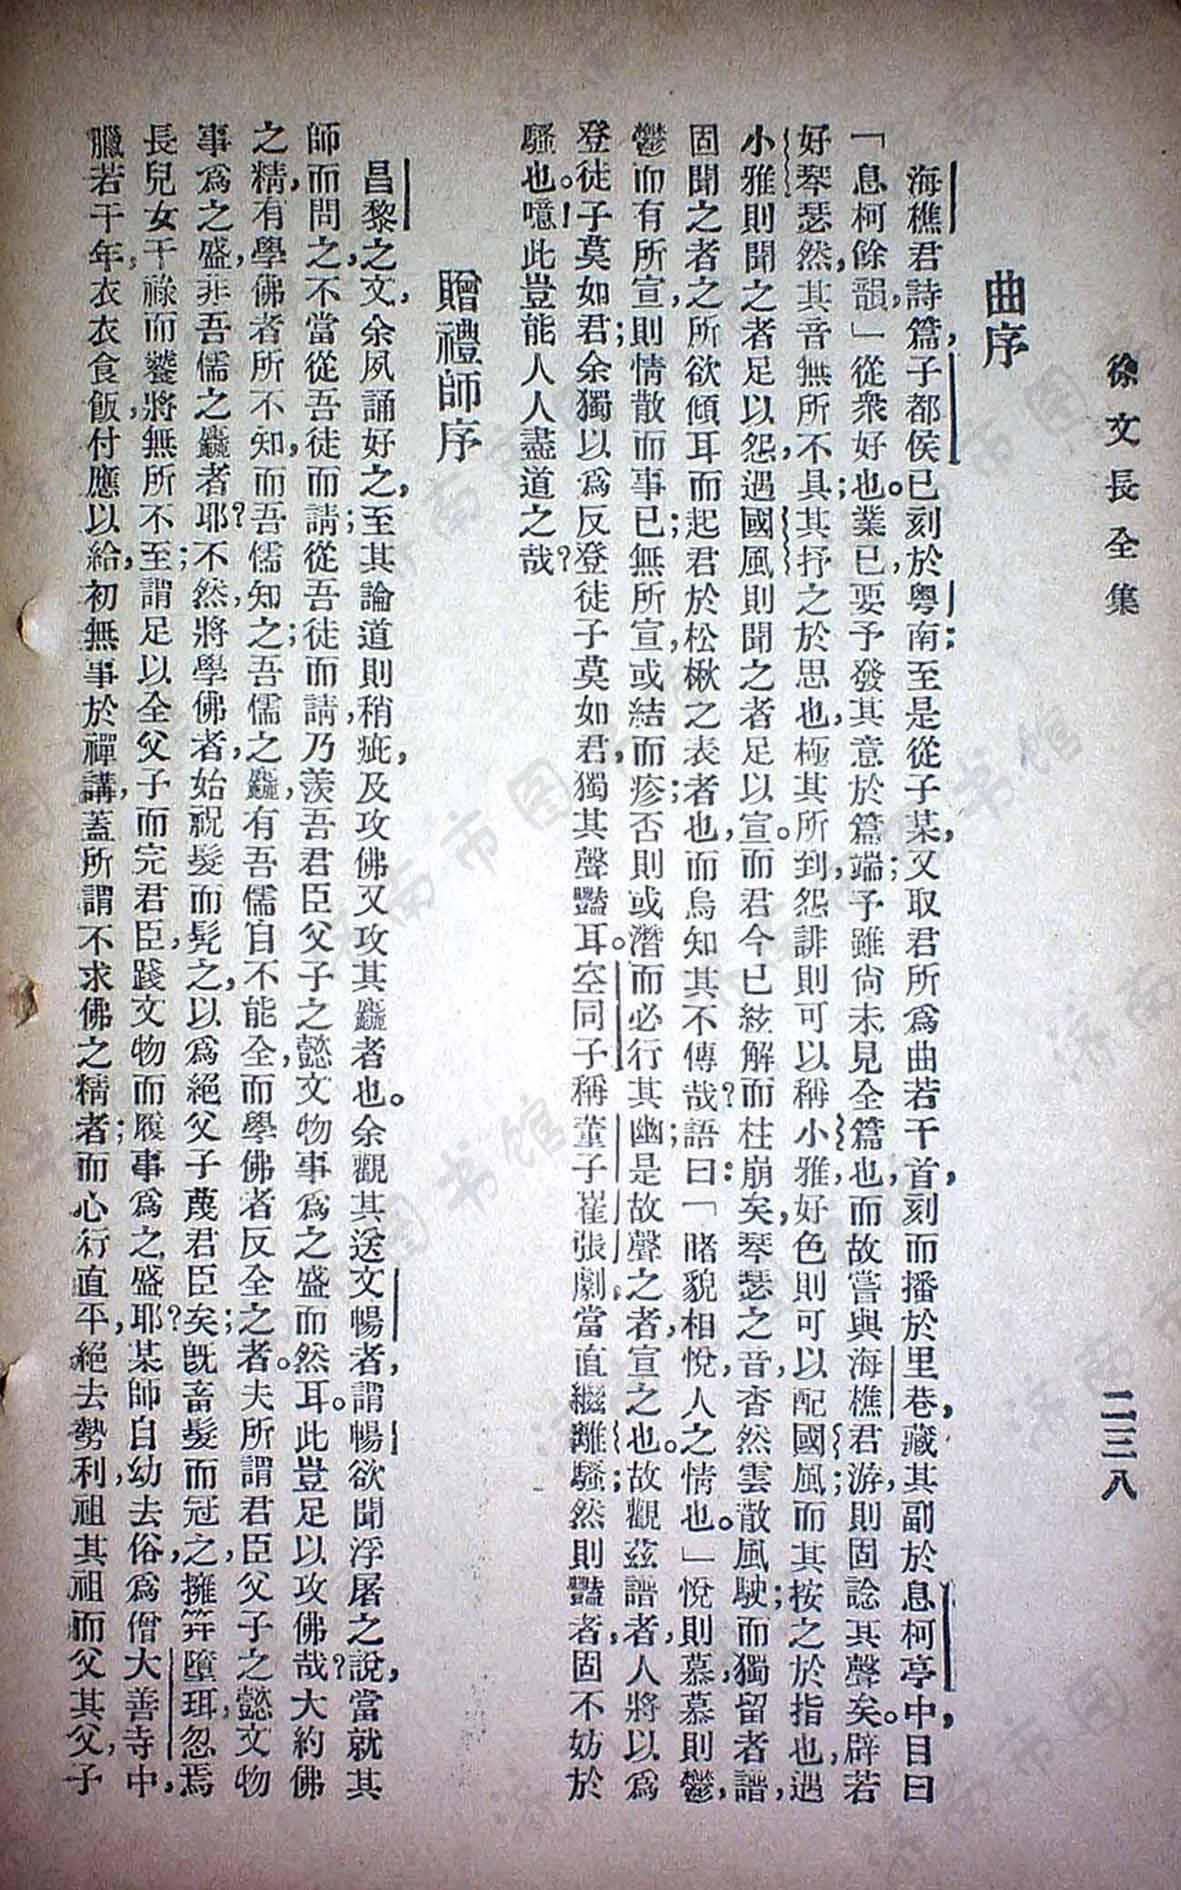 徐文長全集
二三八
曲序
海樵君詩篇，子都侯已刻於粵南；至是從子某，又取君所爲曲若干首，刻而播於里巷，藏其副於息柯亭中，目曰
「息柯餘韻」，從衆好也。業已要予發其意於篇端；予雖尚未見全篇也，而故嘗與海樵君游，則固諗其聲矣。辟若
好琴瑟然，其音無所不具；其抒之於思也，極其所到，怨誹則可以稱小雅，好色則可以配國風；而其按之於指也，遇
小雅則聞之者足以怨，遇國風則聞之者足以宣。而君今已絃解而柱崩矣，琴瑟之音，杳然雲散風駛；而獨留者譜，
固聞之者之所欲傾耳而起君於松楸之表者也，而烏知其不傳哉？語曰：「睹貌相悅，人之情也。」悅則慕，慕則鬱，
鬱而有所宣，則情散而事已；無所宣，或結而疹；否則或潛而必行其幽；是故聲之者，宣之也。故觀茲譜者，人將以爲
登徒子莫如君，余獨以爲反登徒子莫如君，獨其聲豔耳。空同子稱董子崔張劇，當直繼離騷；然則豔者，固不妨於
騷也。噫！此豈能人人盡道之哉？
贈禮師序
昌黎之文，余夙誦好之，至其論道則稍疵，及攻佛又攻其麤者也。余觀其送文暢者，謂暢欲聞浮屠之說，當就其
師而問之，不當從吾徒而請；從吾徒而請，乃羨吾君臣父子之懿，文物事爲之盛而然耳。此豈足以攻佛哉？大約佛
之精，有學佛者所不知，而吾儒知之；吾儒之麤，有吾儒自不能全，而學佛者反全之者。夫所謂君臣父子之懿，文物
事爲之盛，非吾儒之麤者耶？不然，將學佛者，始祝髮而髡之，以爲絕父子蔑君臣矣；旣畜髮而冠之，擁笄墮珥，忽焉
長兒女，干祿而饕，將無所不至；謂足以全父子而完君臣，踐文物而履事爲之盛耶？某師自幼去俗，爲僧大善寺中，
臘若干年，衣衣食飯，付應以給，初無事於禪講，蓋所謂不求佛之精者；而心行直平，絕去勢利，祖其祖而父其父，子